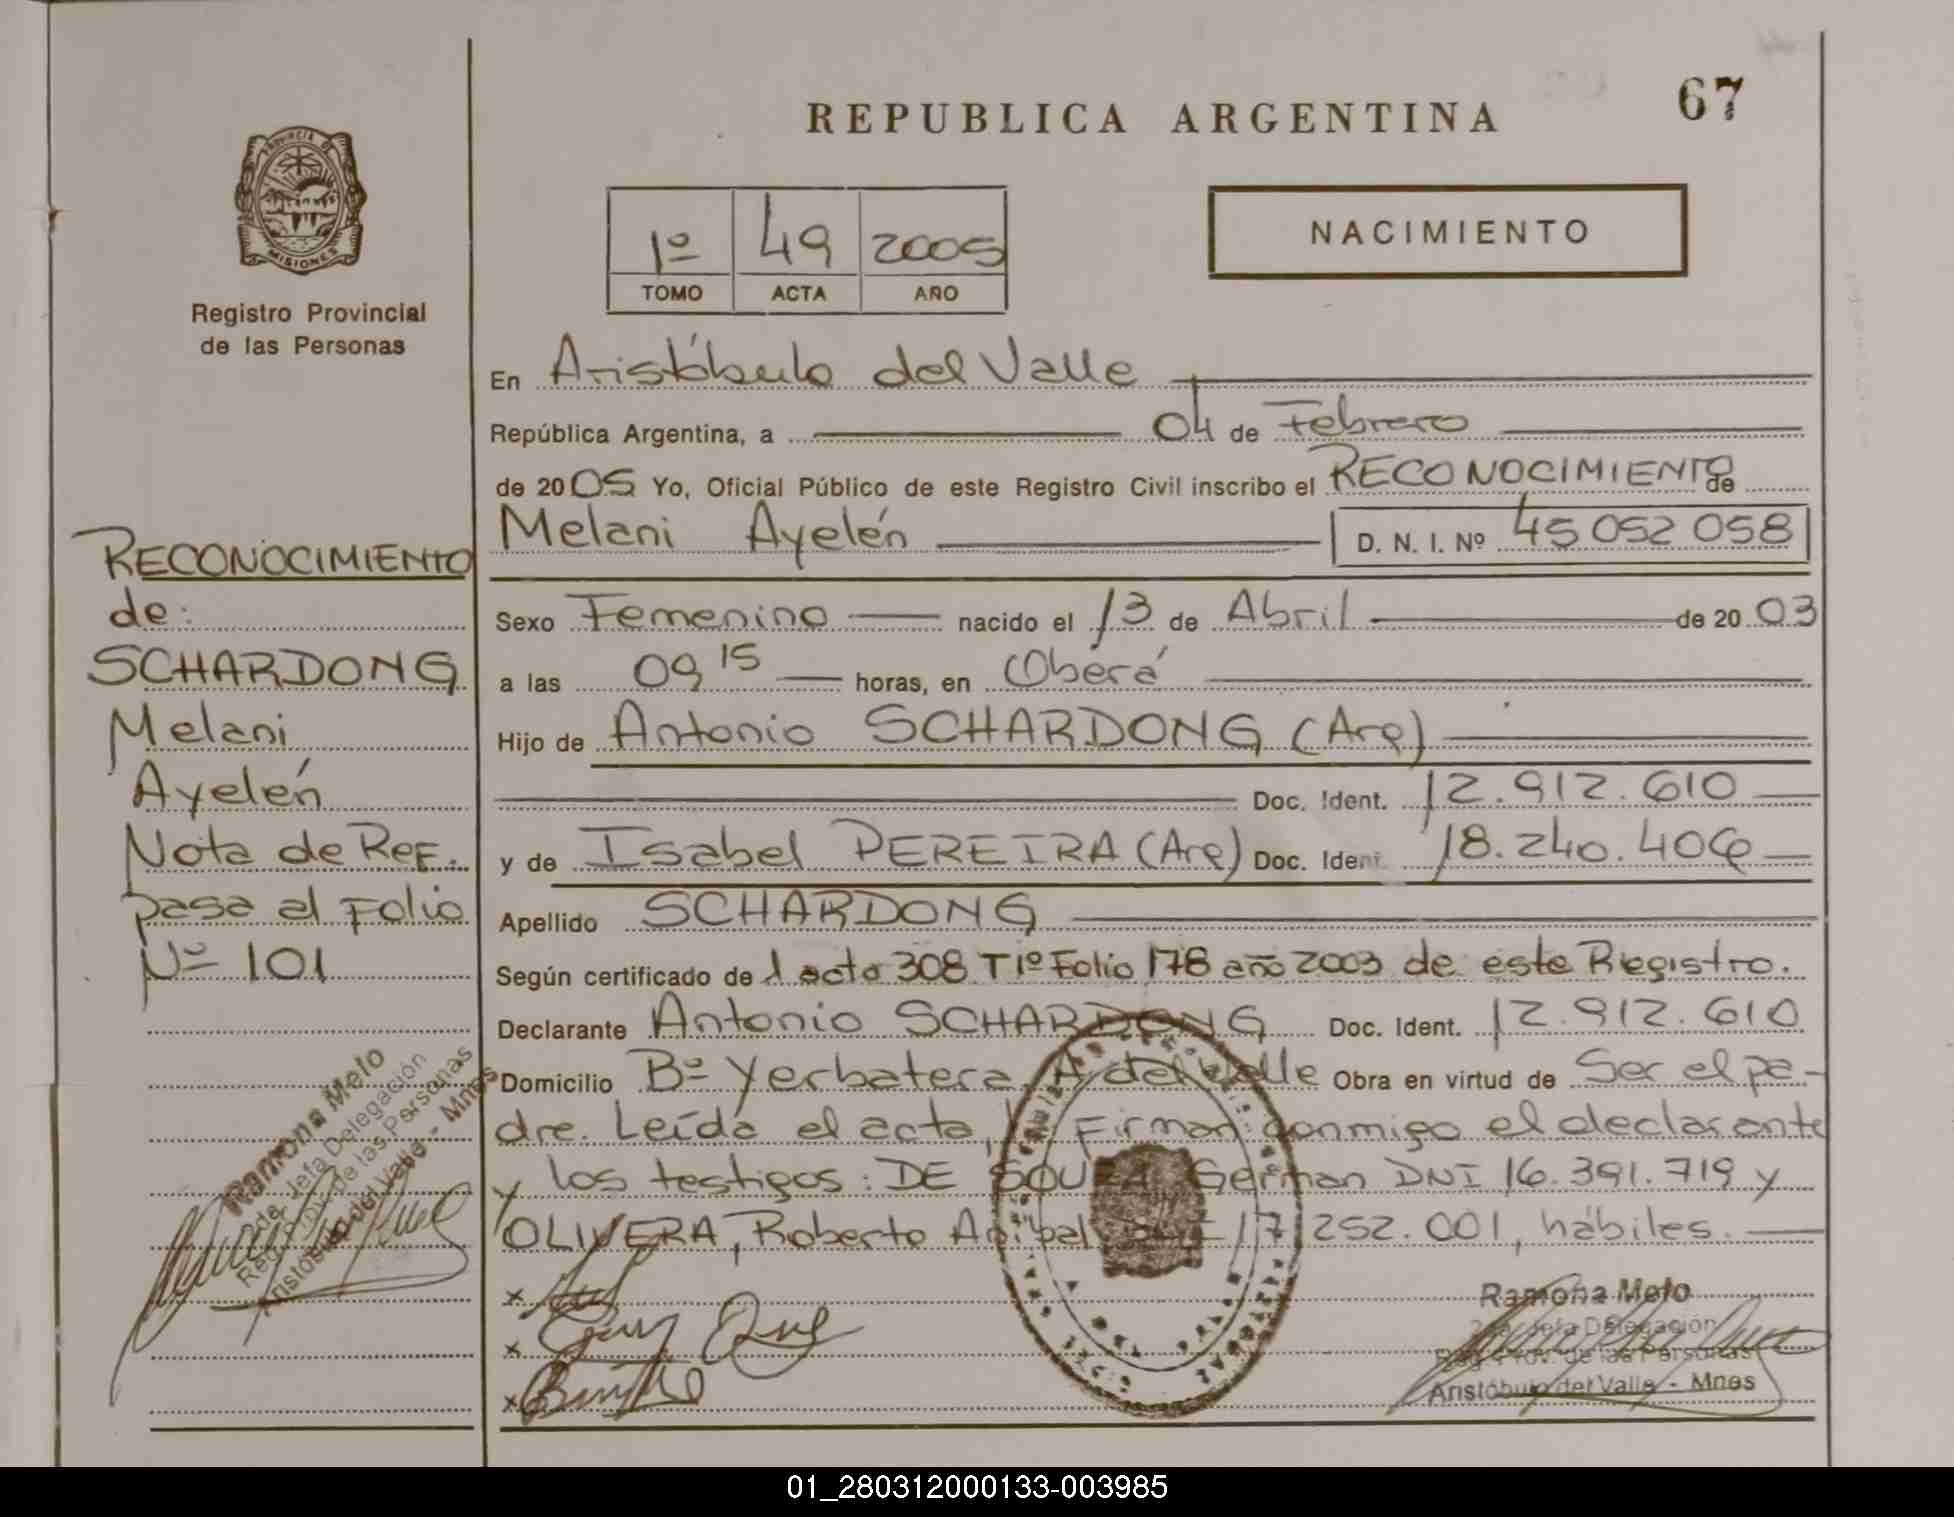 REPUBLICA ARGENTINA
67
PROVINCIA DE
MISIONES
Registro Provincial
de las Personas
1º 49 2005
TOMO ACTA AÑO
NACIMIENTO
En Aristóbulo del Valle
República Argentina, a 04 de Febrero
de 2005 Yo, Oficial Público de este Registro Civil inscribo el RECONOCIMIENTO de
Melani Ayelén D. N. I. Nº 45 052 058
Sexo Femenino nacido el 13 de Abril de 2003
a las 09 15 horas, en Oberá
Hijo de Antonio SCHARDONG (Arg)
Doc. Ident. 12.912.610
y de Isabel PEREIRA (Arg) Doc. Ident. 18.240.406
Apellido SCHARDONG
Según certificado de 1 acta 308 T1º Folio 178 año 2003 de este Registro.
Declarante Antonio SCHARDONG Doc. Ident. 12.912.610
Domicilio Bº Yerbatera, A. del Valle Obra en virtud de Ser el pa-
dre. Leída el acta, Firman conmigo el declarante
y los testigos: DE SOUZA German DNI 16.391.719 y
OLIVERA, Roberto Anibal DNI 17.252.001, hábiles.
x
x
x
Ramona Melo
2da. Jefa Delegación
Reg. Prov. de las Personas
Aristóbulo del Valle - Mnes
RECONOCIMIENTO
de:
SCHARDONG
Melani
Ayelén
Nota de REF.
pasa al Folio
Nº 101
Ramona Melo
2da. Jefa Delegación
Reg. Prov. de las Personas
Aristóbulo del Valle - Mnes
01_280312000133-003985